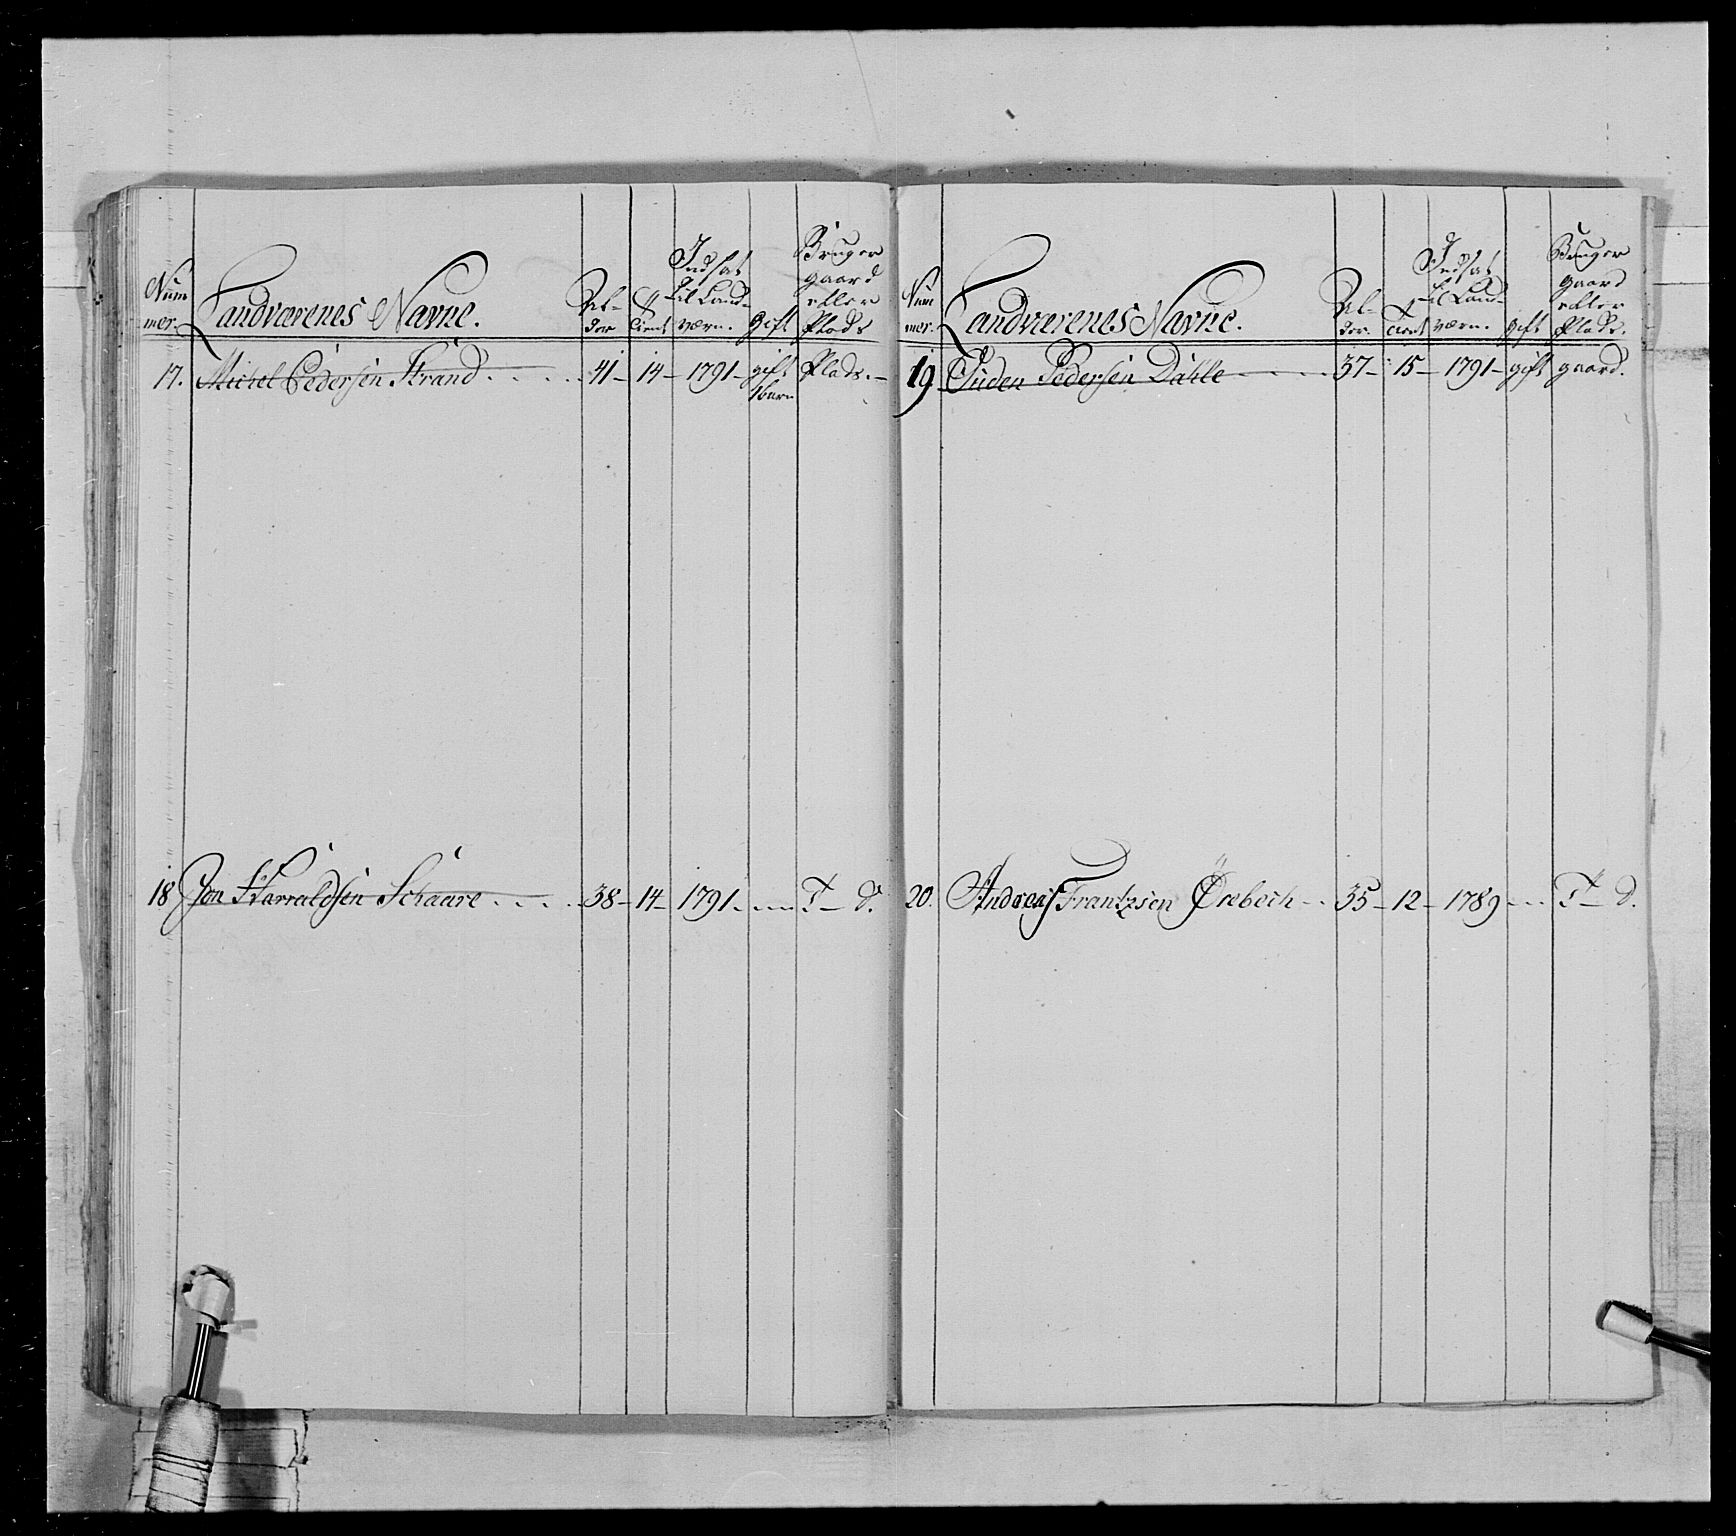 Num
mer.
Landværenes Navne.
Al-
der
tient
Indsat
til Land-
værn.
gift
Bruger
gaard
eller
Plads
17. Michel Pedersen Strand 41 - 14 - 1791 - gift Plads. -
1 barn
18 Jon Harraldsen Schaare 38 - 14 - 1791. T - d.
Num
mer.
Landværenes Navne.
Al-
der.
tient
Indsat
til Land-
værn.
gift
Bruger
gaard
eller
Plads.
19 Pedersen Dahle 37 - 15 - 1791 - gift gaard.
20. Andreas Frantzsen Örebech 35 - 12 - 1789 T - d.